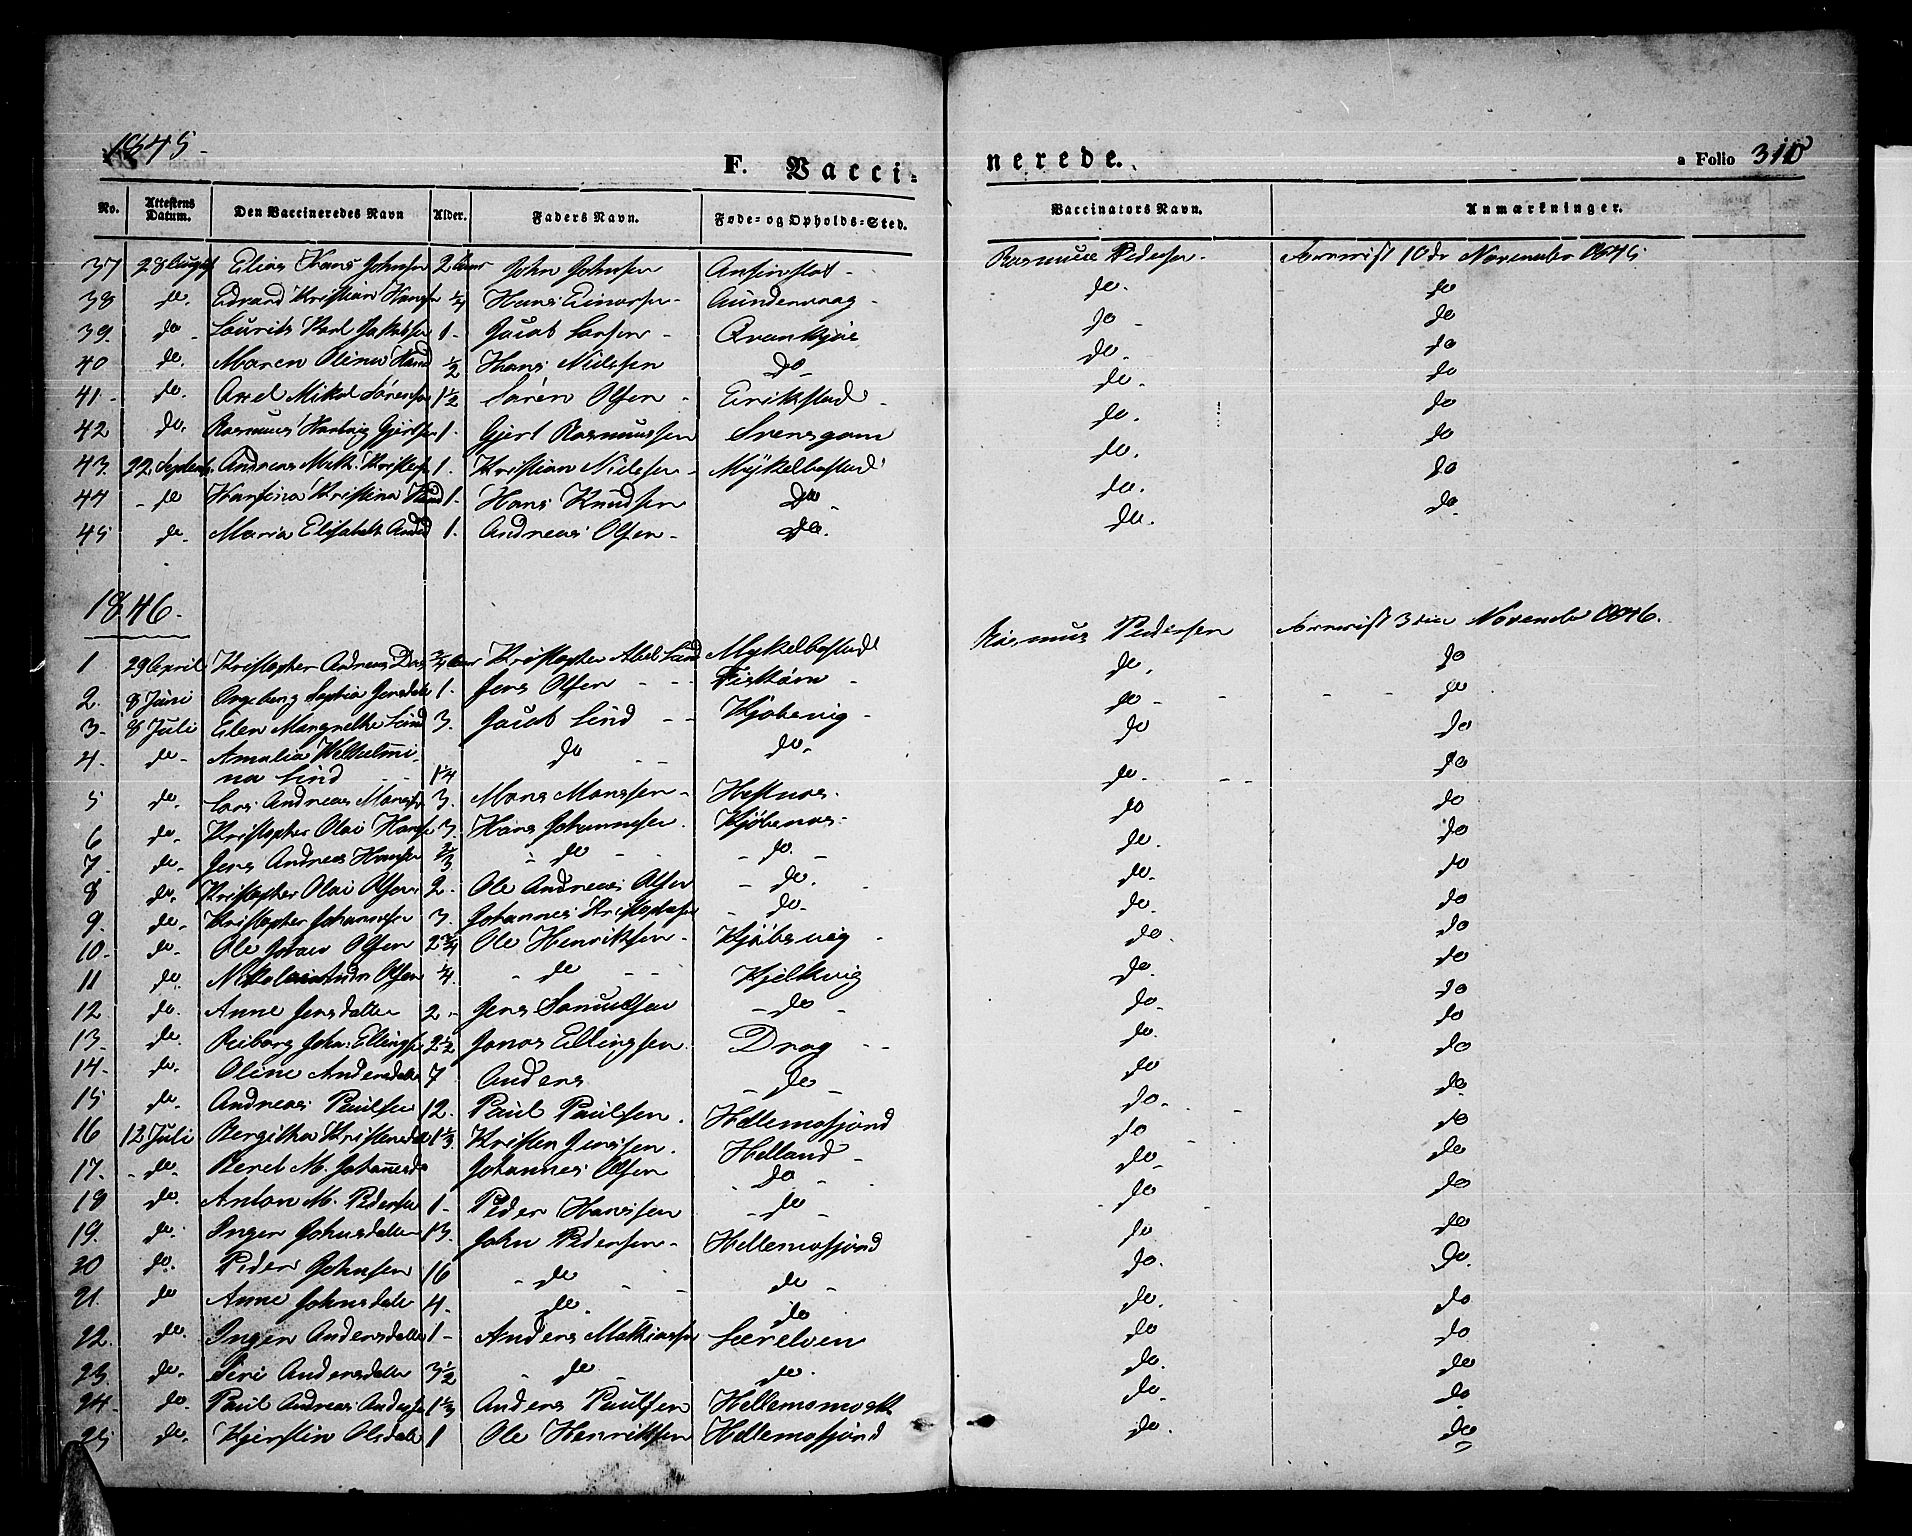 1845.
F. Vaccinerede.
a Folio 310
No. Attestens Datum. Den Vaccineredes Navn Alder. Faders Navn. Føde- og Opholds-Sted. Vaccinators Navn. Anmærkninger.
37 28 August Elias Hans Johnsen 2 Aar John Johnsen Rasmus Pedersen 10de November 1845
38 do. Edvard Kristian Hansen 1/4 Hans Einarsen do. do
39. do Laurits Karl Jakobsen 1. Jacob Larsen do do
40 do. Maren Olina Hansd 1/2 Hans Nielsen do do. do
41 do. Axel Mikal Sørensen 1 1/2 Søren Olsen Erikstad do. do
42 do. Rasmus Hartvig Gjertsen 1. Gjert Rasmussen Svensgam do. do
43. 22 Septemb. Andreas Mik. Kristians 1. Kristian Nielsen Mykelbostad do. do
44 do Hansina Kristina Hansd 1. Hans Knudsen do do. do
45 do. Maria Elisabeth Andrd 1. Andreas Olsen do. do. do.
1846.
1 29 April Kristopher Andreas 3/4 Aar Kristopher Abel Lind Mykelbostad Rasmus Pedersen 3die November 1846.
2. 8 Juni Ingeborg Sophia Jensdatter 1. Jens Olsen do. do
3. 8 Juli Elen Margrethe Lind 3. Jacob Lind Kjøbsvig do. do
4. do. Amalia Wilhelmina Lind 1 1/4 do do. do do
5 do. Lars Andreas Monsen 3. Mons Monssen Hestnas. do. do
6 do. Kristopher Olai Hansen 3. Hans Johannesen. Kjøbsnas. do do
7. do. Jens Andreas Hansen 2/3 do do. do. do
8 do. Kristopher Olai Olsen 2. Ole Andreas Olsen do. do. do
9. do. Kristopher Johannesen 3. Johannes Kristophersen do. do. do
10. do. Ole Olsen 2 3/4 Ole Henriksen Kjøbsvig do. do
11 do. Nikolai Andr Olsen 1/4 do Kjelkvig do. do
12 do. Anne Jensdatter 2. Jens Samuelsen do do. do
13. do. Johan Ellingsen 2 1/2 Jonas Ellingsen. Drag do. do
14. do. Oline Andersdatter 7 Anders do do do
15 do. Andreas Paulsen 12. Paul Paulsen. Hellemofjord do. do.
16 12 Juli Bergitha Kristensdatter 1 1/3 Kristen Jenssen. Helland do do
17. do. Beret M. Johannesd Johannes Olsen do do. do
18 do. Anton M. Pedersen 1. Peder Hanssen do do do
19. do. Inger Johnsdatter 13. John Pedersen Hellemofjord do do
20 do. Peder Johnsen 16 do do do. do.
21. do Anne Johnsdatter 4. do. do do. do
22. do. Inger Andersdatter 1 Anders Mathiassen Lærelven do do
23. do. Siri Andersdatter 3 1/2 do do. do. do
24. do. Paul Andreas Andersen 1 1/3 Anders Paulsen Hellemomark do. do
25 do. Kjerstin Olsdatter 1 Ole Henriksen Hellemofjord do. do